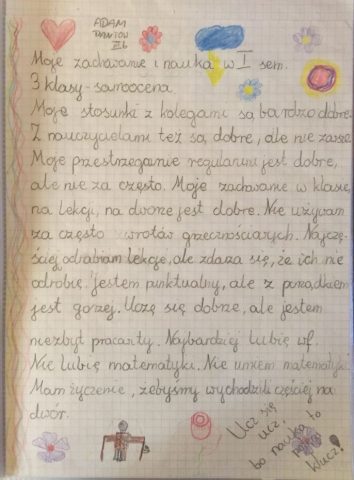 ADAM
III b
Moje zachowanie i nauka w I sem.
3 klasy - samoocena.
Moje stosunki z kolegami są bardzo dobre.
Z nauczycielami też są dobre, ale nie zawsze.
Moje przestrzeganie regulaminu jest dobre,
ale nie za często. Moje zachowanie w klasie,
na lekcji, na dworze jest dobre. Nie używam
za często zwrotów grzecznościowych. Najczę-
ściej odrabiam lekcje, ale zdaża się, że ich nie
odrobię. Jestem punktualny, ale z porządkiem
jest gorzej. Uczę się dobrze, ale jestem
niezbyt pracowity. Najbardziej lubię wf.
Nie lubię matematyki. Nie umiem matematyki.
Mam życzenie, żebyśmy wychodzili częściej na
dwór.
Ucz się
ucz,
bo nauka to
klucz!